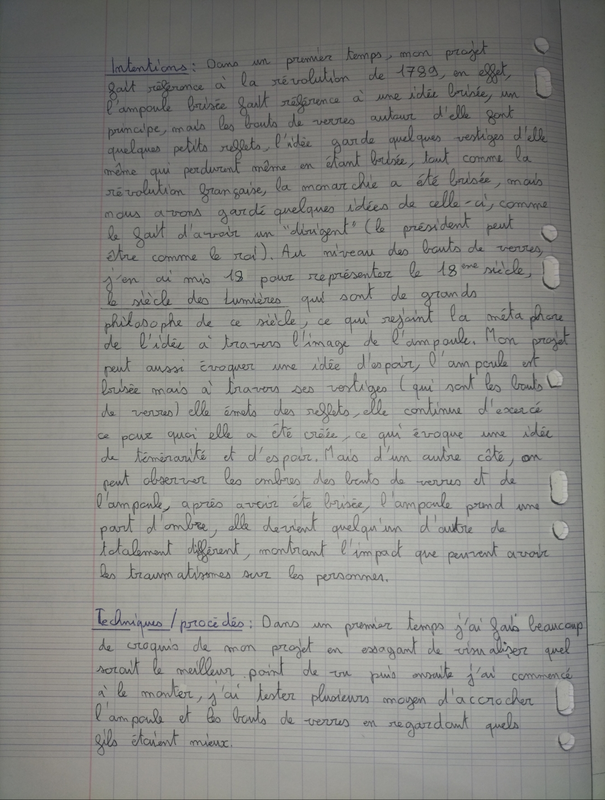 Intentions : Dans un premier temps, mon projet
fait référence à la révolution de 1789, en effet,
l'ampoule brisée fait référence à une idée brisée, un
principe, mais les bouts de verres autour d'elle font
quelques petits reflets, l'idée garde quelques vestiges d'elle
même qui perdurent même en étant brisée, tout comme la
révolution française, la monarchie a été brisée, mais
nous avons gardé quelques idées de celle-ci, comme
le fait d'avoir un "dirigent" (le président peut
être comme le roi). Au niveau des bouts de verres,
j'en ai mis 18 pour représenter le 18ème siècle,
le siècle des Lumières qui sont de grands
philosophe de ce siècle, ce qui rejoint la métaphore
de l'idée à travers l'image de l'ampoule. Mon projet
peut aussi évoquer une idée d'espoir, l'ampoule est
brisée mais à travers ses vestiges (qui sont les bouts
de verres) elle émets des reflets, elle continue d'exercé
ce pour quoi elle a été créée, ce qui évoque une idée
de témérarité et d'espoir. Mais d'un autre côté, on
peut observer les ombres des bouts de verres et de
l'ampoule, après avoir été brisée, l'ampoule prend une
part d'ombre, elle devient quelqu'un d'autre de
totalement différent, montrant l'impact que peuvent avoir
les traumatismes sur les personnes.
Techniques / procédés : Dans un premier temps j'ai fais beaucoup
de croquis de mon projet en essayant de visualiser quel
serait le meilleur point de vu puis ensuite j'ai commencé
à le monter, j'ai tester plusieurs moyen d'accrocher
l'ampoule et les bouts de verres en regardant quels
fils étaient mieux.